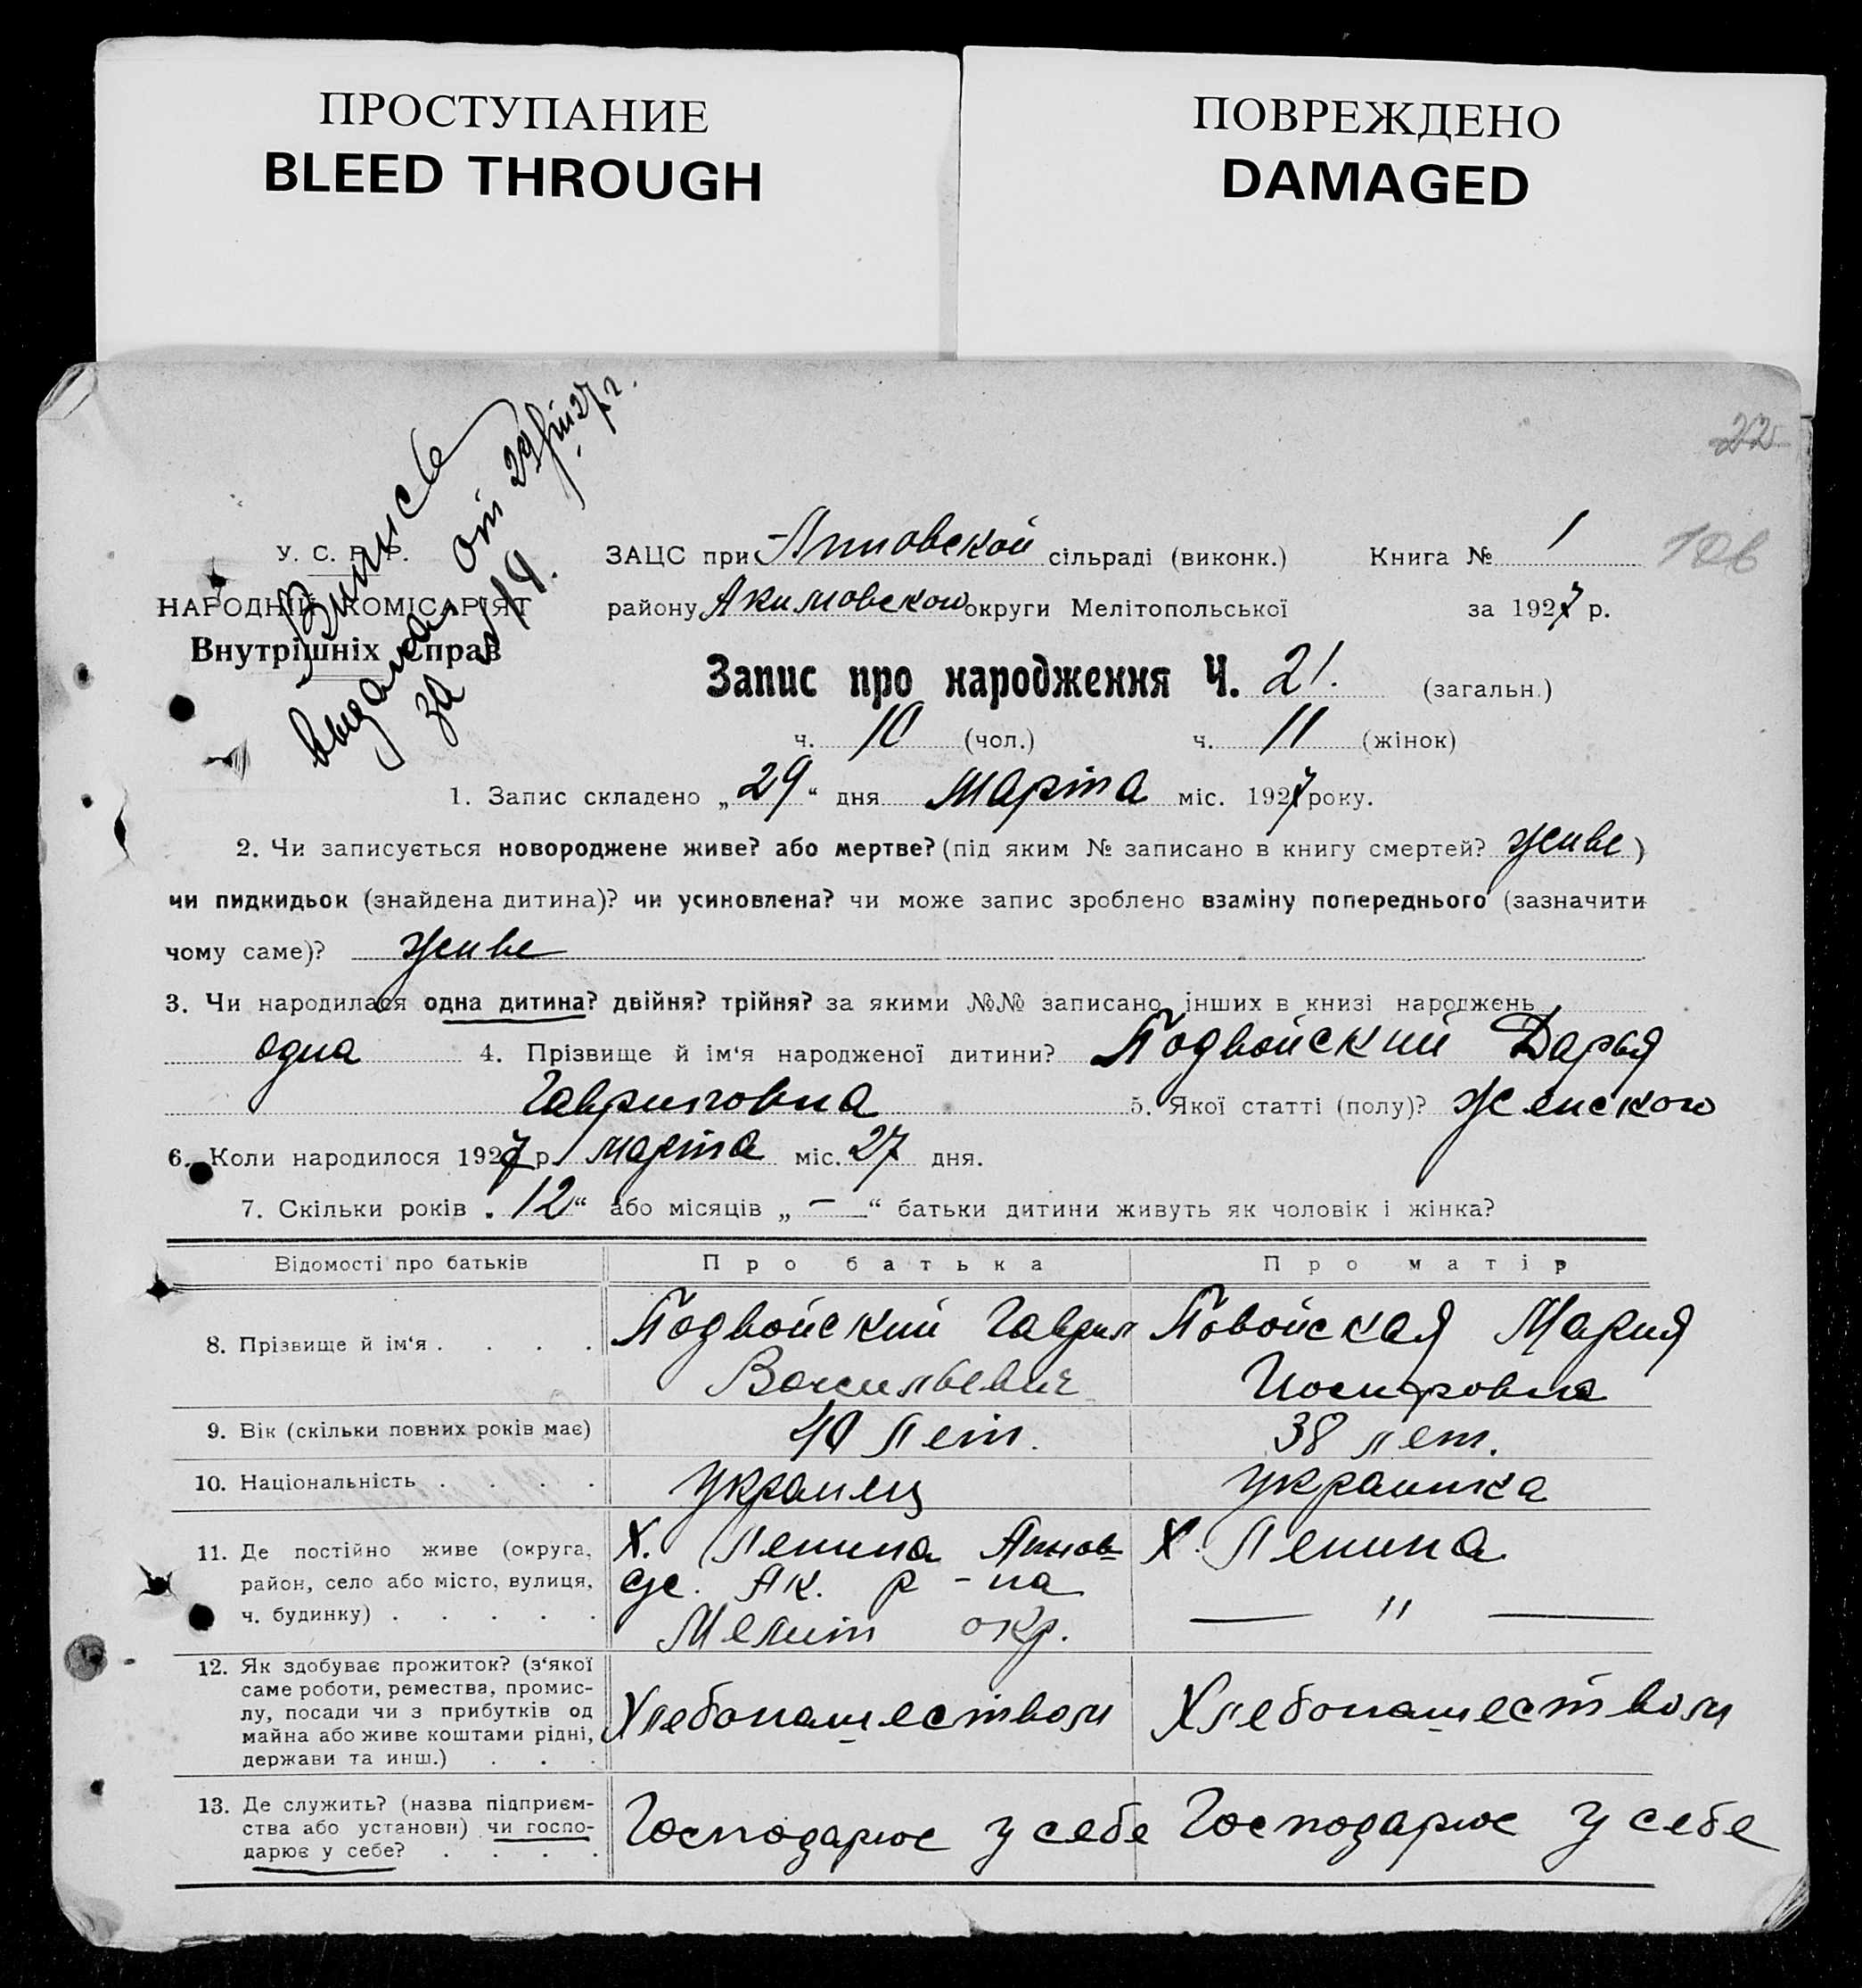 ПРОСТУПАНИЕ
BLEED THROUGH
ПОВРЕЖДЕНО
DAMAGED
22
106
Випись
выдана от 29/III 27 г.
за № 19.
У. С. Р. Р.
НАРОДНІЙ КОМІСАРІЯТ
Внутрішніх Справ
ЗАЦС при Анновской сільраді (виконк.) Книга № 1
району Акимовского округи Мелітопольської за 1927 р.
Запис про народження Ч. 21. (загальн.)
ч. 10 (чол.) ч. 11 (жінок)
1. Запис складено „29“ дня Марта міс. 1927 року.
2. Чи записується новороджене живе? або мертве? (під яким № записано в книгу смертей? живе)
чи пидкидьок (знайдена дитина)? чи усиновлена? чи може запис зроблено взаміну попереднього (зазначити
чому саме)? живе
3. Чи народилася одна дитина? двійня? трійня? за якими №№ записано інших в книзі народжень
одна 4. Прізвище й ім‘я народженої дитини? Подвойский Дарья
Гавриловна 5. Якої статті (полу)? Женского
6. Коли народилося 1927 р. марта міс. 27 дня.
7. Скільки років „12“ або місяців „—“ батьки дитини живуть як чоловік і жінка?
Відомості про батьків Про батька Про матір
8. Прізвище й ім‘я . . . . Подвойский Гаврил Повойская Мария
Васильевич Иосифовна
9. Вік (скільки повних років має) 40 лет. 38 лет.
10. Національність . . . . украинец украинка
11. Де постійно живе (округа, Х. Ленина Аннов Х. Ленина
район, село або місто, вулиця, с/с. Ак. р-на
ч. будинку) . . . . . Мелит окр. — " —
12. Як здобуває прожиток? (з‘якої
саме роботи, ремества, промис-
лу, посади чи з прибутків од Хлебопашеством Хлебопашеством
майна або живе коштами рідні,
держави та инш.) . . .
13. Де служить? (назва підприєм-
ства або установи) чи госпо- Господарює у себе Господарює у себе
дарює у себе? . . . .